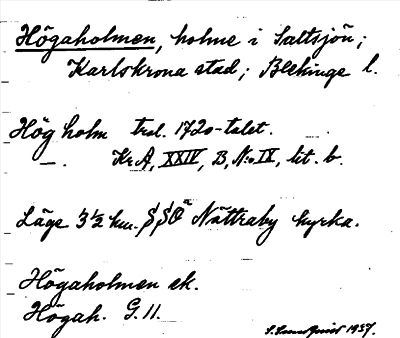 Högaholmen, holme i Saltsjön;
Karlskrona stad; Blekinge l.
Hög holm trol. 1720-talet.
—. KrA, XXIV, B, No IX, lit. b.
Läge 3½ km. SSO Nättraby kyrka.
Högaholmen ek.
Högah. G. 11.
S. Lundqvist 1937.